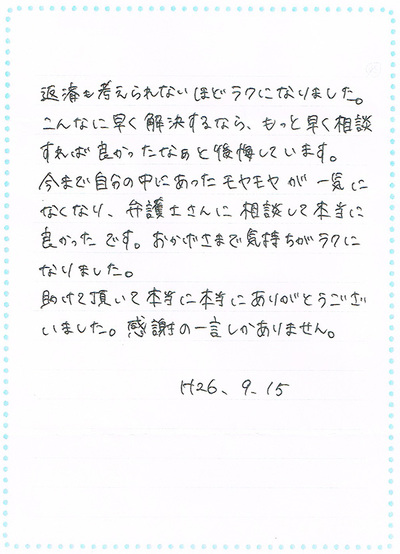 返済も考えられないほどラクになりました。
こんなに早く解決するなら、もっと早く相談
すれば良かったなぁと後悔しています。
今まで自分の中にあったモヤモヤが一気に
なくなり、弁護士さんに相談して本当に
良かったです。おかげさまで気持ちがラクに
なりました。
助けて頂いて本当に本当にありがとうござい
いました。感謝の一言しかありません。
H26、9、15